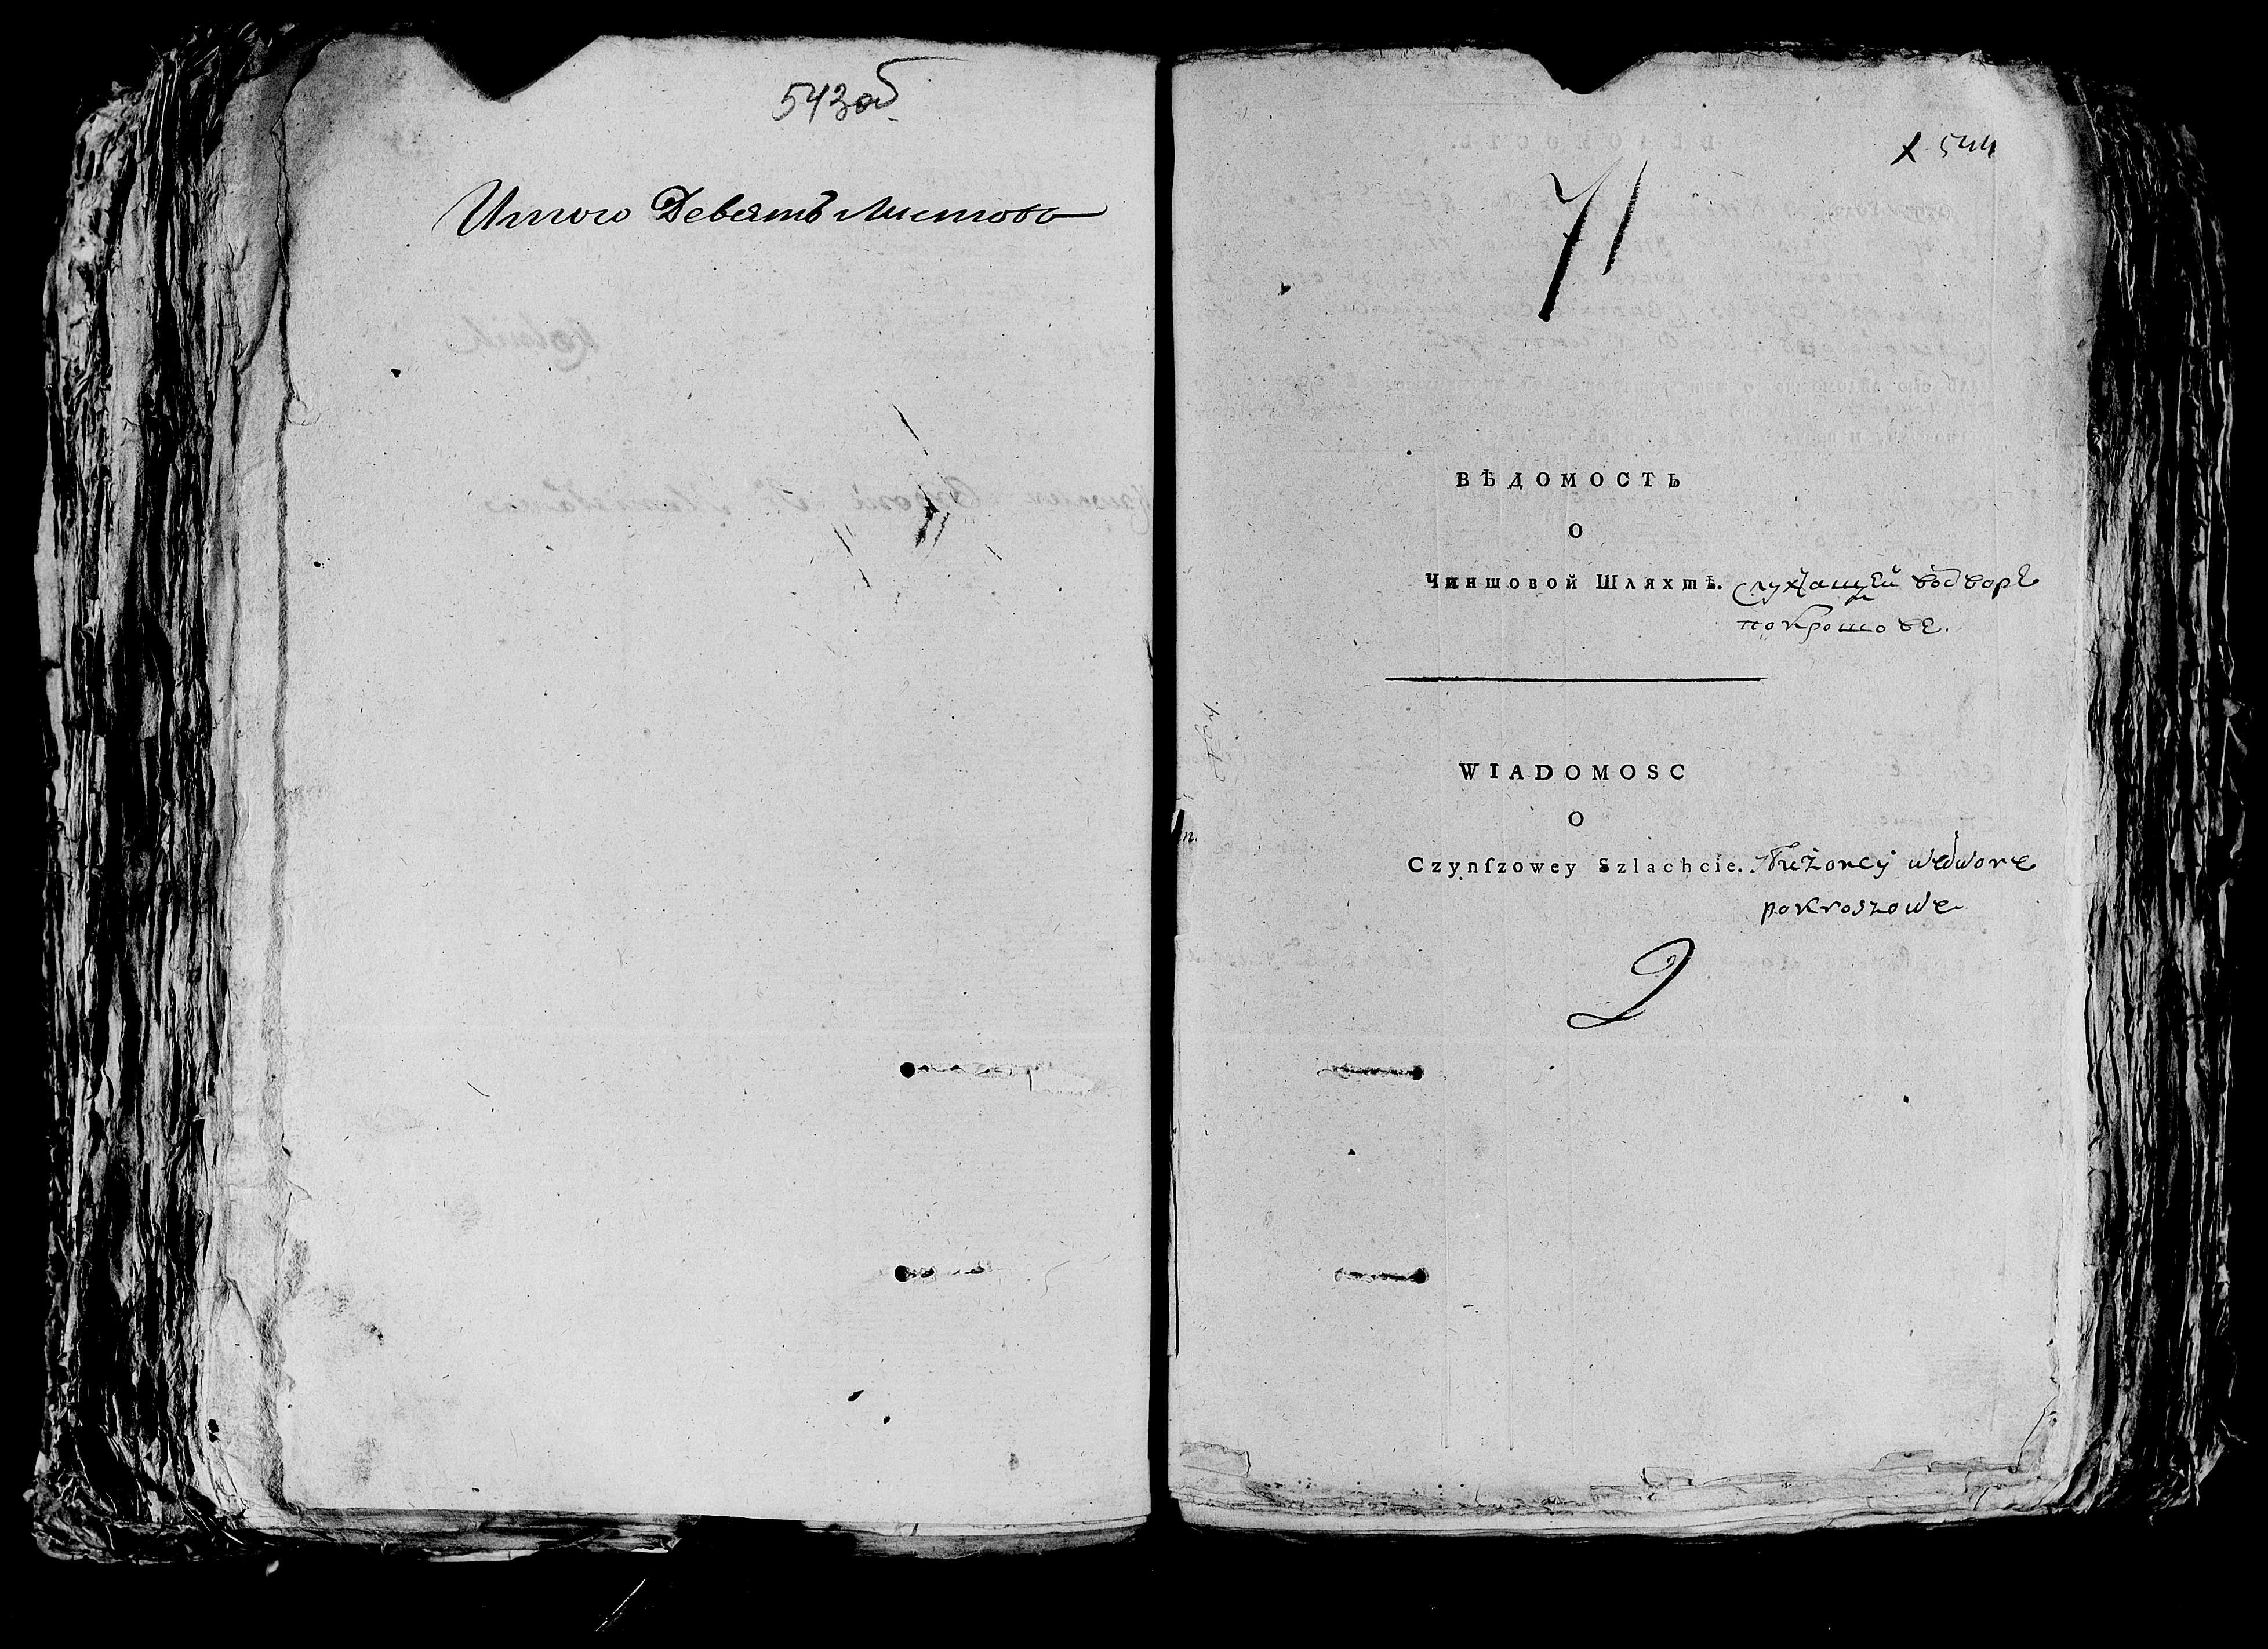 543об
Итого Девять Листовъ
544
71
ВѢДОМОСТЬ
О
Чиншовой Шляхтѣ. служащей водворе
покрошове.
WIADOMOSC
O
Czynſzowey Szlachcie. służoncy wedwore
pokroszowe
9